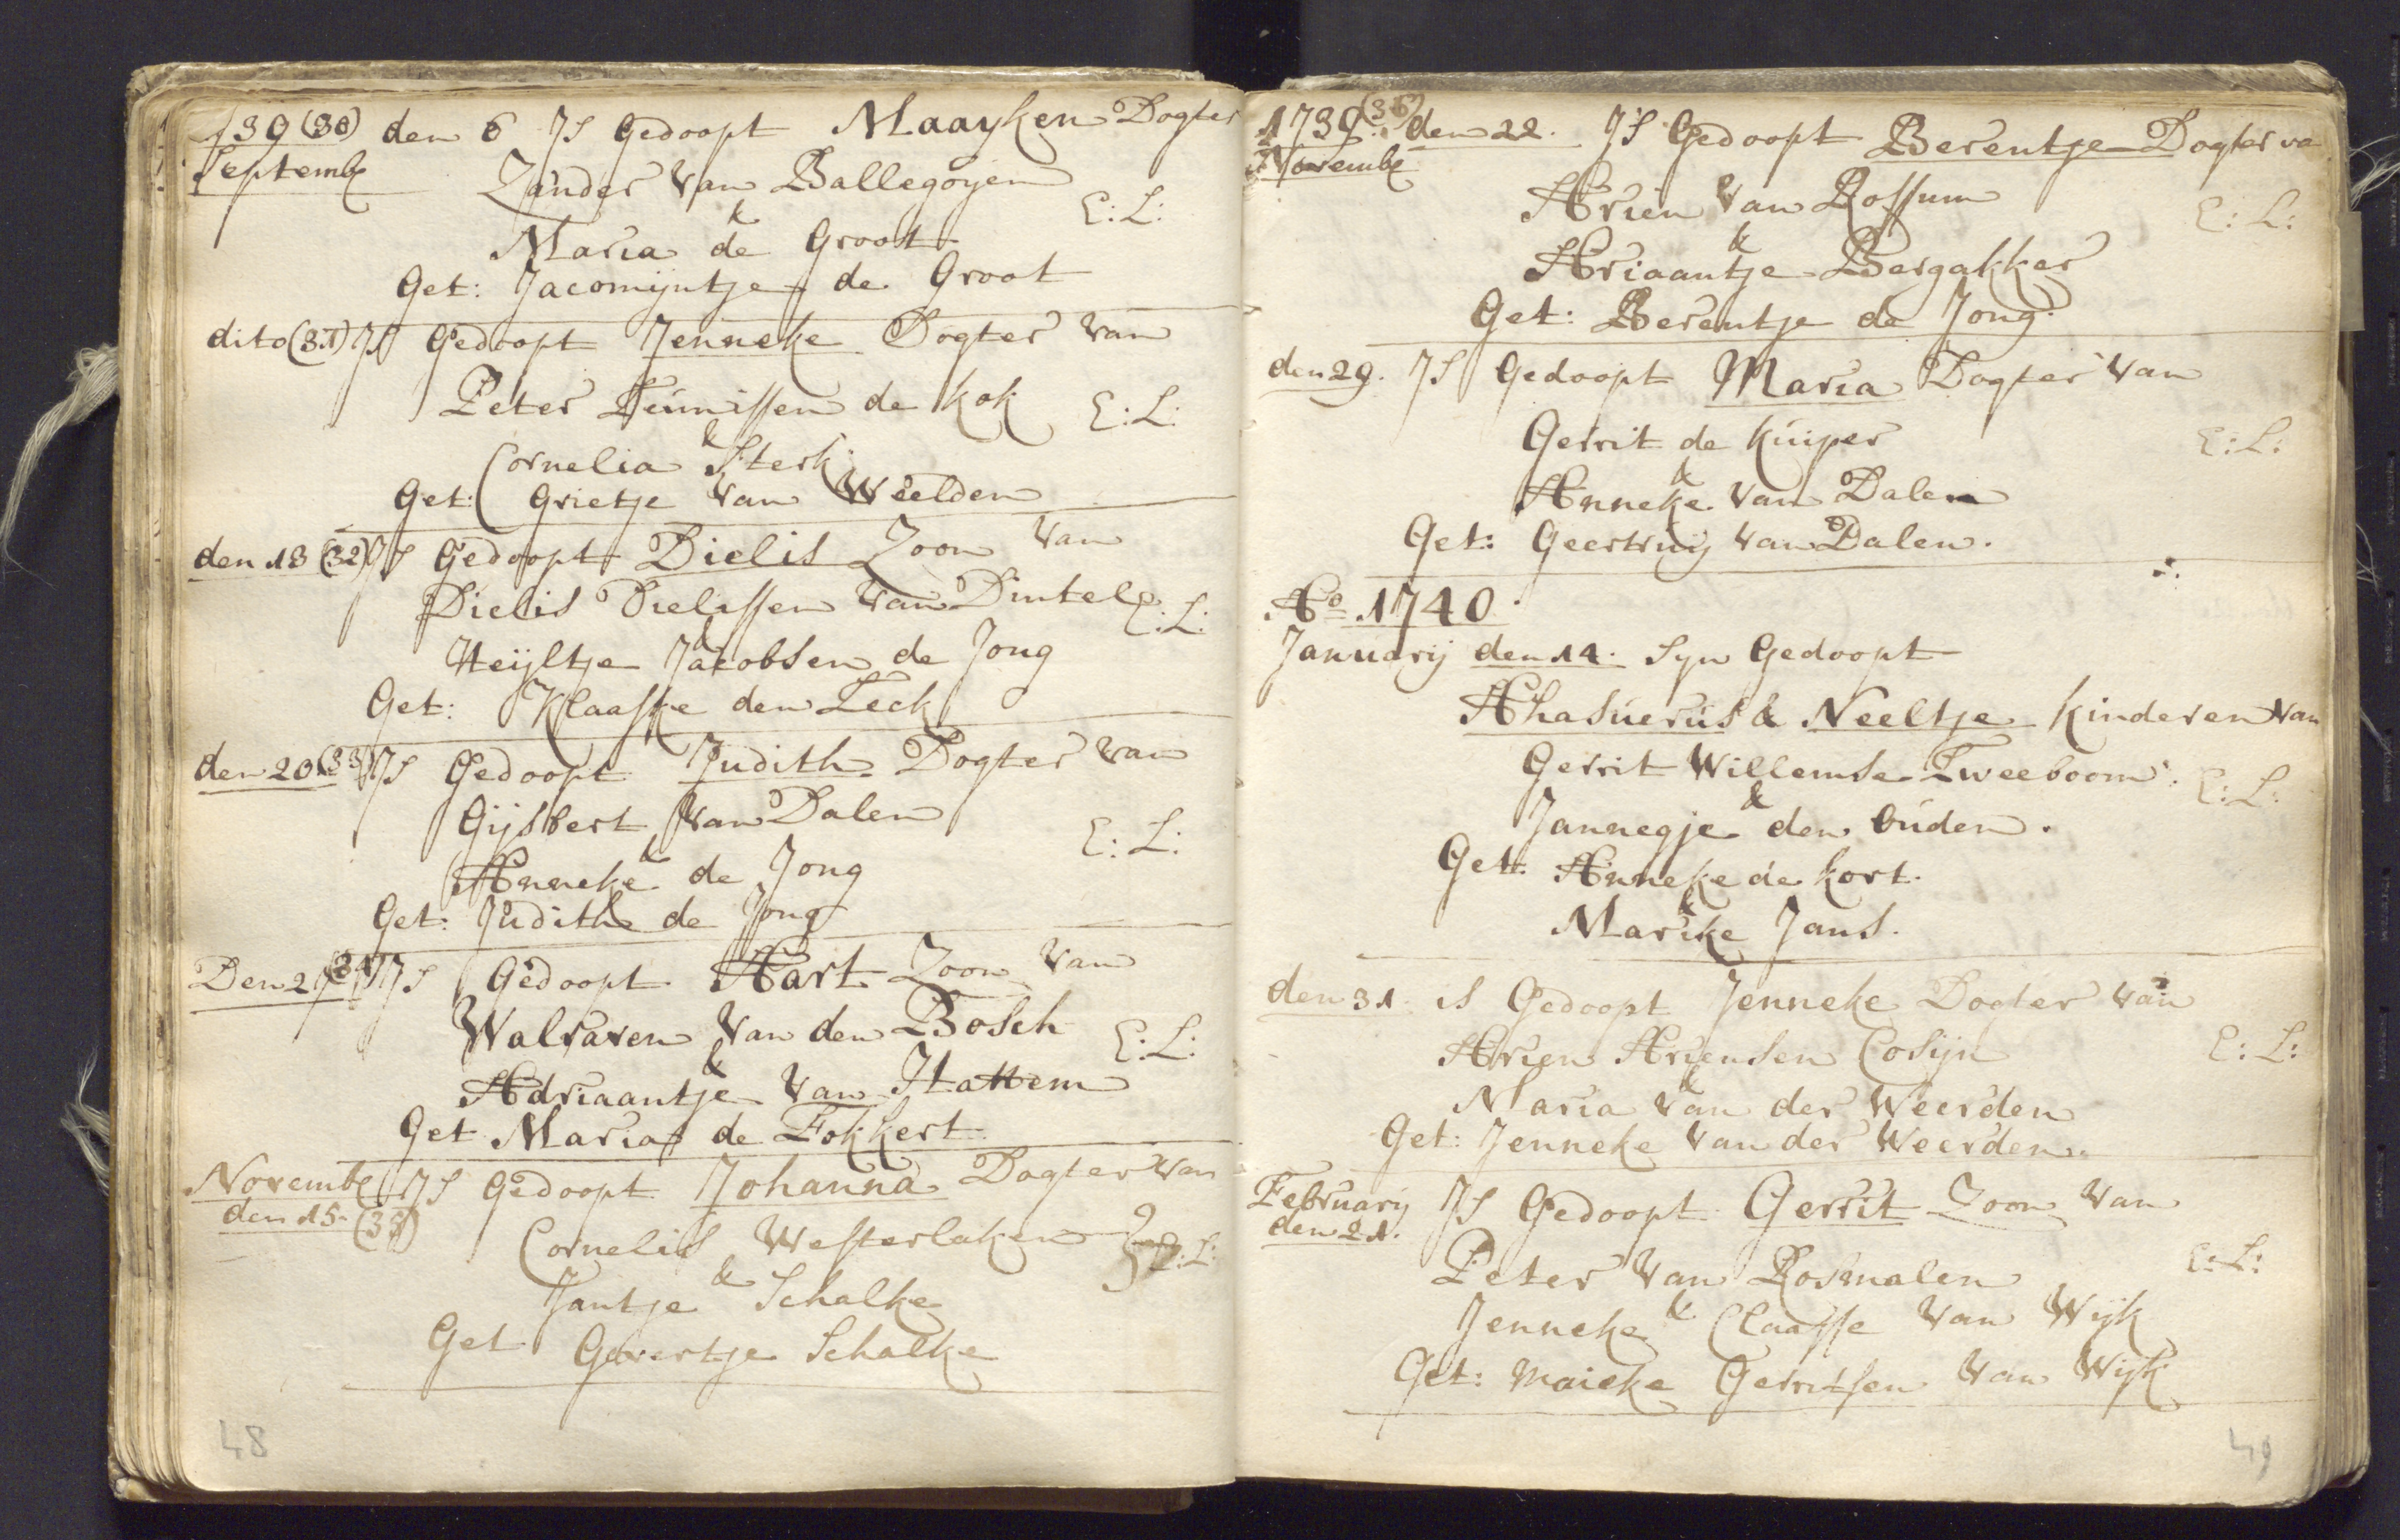 1739 (30) den 6 Is Gedoopt Maayken Dogter
Septemb
Zander Van Ballegoyen
&
Maria de Groot
E: L:
Get: Jacomijntje de Groot
dito (31) Is Gedoopt Jenneke Dogter van
Peter Teunissen de kok
E: L:
&
Cornelia Sterk
Get: Grietje van Weelden
den 13 (32) Is Gedoopt Dielis Zoon van
Dielis Dielissen van Dintel
E: L:
&
Heijltje Jacobsen de Jong
Get: Klaaske den Teck
den 20 (33) Is Gedoopt Judith Dogter van
Gijsbert van Dalen
E: L:
&
Anneke de Jong
Get: Judith de Jong
Den 27 (34) Is Gedoopt Aart Zoon van
Walraven van den Bosch
E: L:
&
Adriaantje van Hattem
Get Maria de Fokkert
Novemb Is Gedoopt Johanna Dogter van
den 15. (35)
Cornelis Westerlaken
E: L:
&
Jantje Schalke
Get Govertje Schalke
48
1739 (36) den 22. Is Gedoopt Berentje Dogter va
Novemb
Arien van Rossum
E: L:
&
Ariaantje Bergakker
Get: Berentje de Jong
den 29. Is Gedoopt Maria Dogter van
Gerrit de Kuiper
E: L:
&
Anneke van Dalen
Get: Geertruij van Dalen.
Ao 1740.
Januarij den 14. Syn Gedoopt
Ahasuerus & Neeltje Kinderen van
Gerrit Willemse Tweeboom.
E: L:
&
Jannegje den Ouden.
Get: Anneke de kort.
&
Marike Jans.
den 31. is Gedoopt Jenneke Dogter van
Arien Ariensen Cosijn
E: L:
&
Maria van der Weerden
Get: Jenneke van der Weerden
February Is Gedoopt Gerrit Zoon van
den 21.
Peter van Rosmalen
E: L:
&
Jenneke Claasse van Wijk
Get: Maieke Gerritsen van Wijk
49